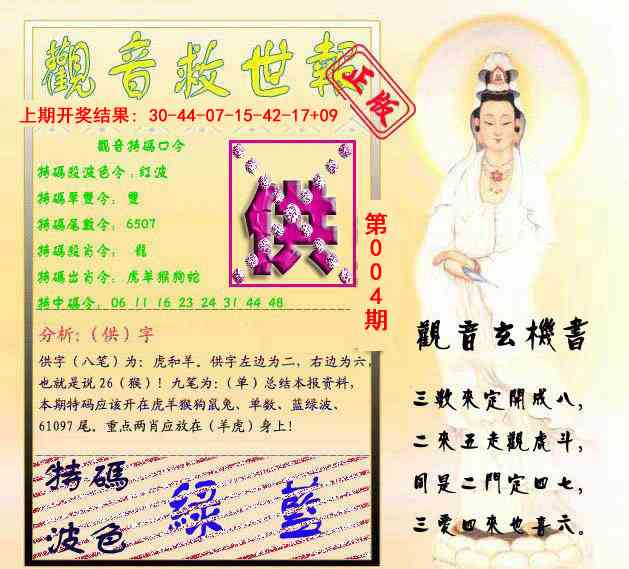 觀音救世報
正版
上期开奖结果：30-44-07-15-42-17+09
觀音特碼口令
特碼殺波色令：红波
特碼單雙令： 雙
特碼尾數令： 6507
特碼殺肖令： 龍
特碼出肖令： 虎羊猴狗蛇
特中碼令： 06 11 16 23 24 31 44 48
供
第004期
分析：（供）字
供字（八笔）为：虎和羊。供字左边为二，右边为六，
也就是说26（猴）！九笔为：（单）总结本报资料，
本期特码应该开在虎羊猴狗鼠兔、单数、蓝绿波、
61097尾。重点两肖应放在（羊虎）身上！
特碼
波色
綠 藍
觀音玄機書
三数來定開成八，
二來五走觀虎斗，
目是二門定四七，
三愛四來也喜六。